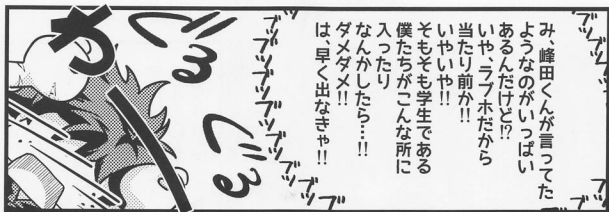 ブツブツ
み、峰田くんが言ってた
ようなのがいっぱい
あるんだけど!?
いや、ラブホだから
当たり前か!!
いやいや!!
そもそも学生である
僕たちがこんな所に
入ったり
なんかしたら…!!
ダメダメ!!
は、早く出なきゃ!!
ブツブツ
ブツブツブツブツブツブツ
ぐる
ぐる